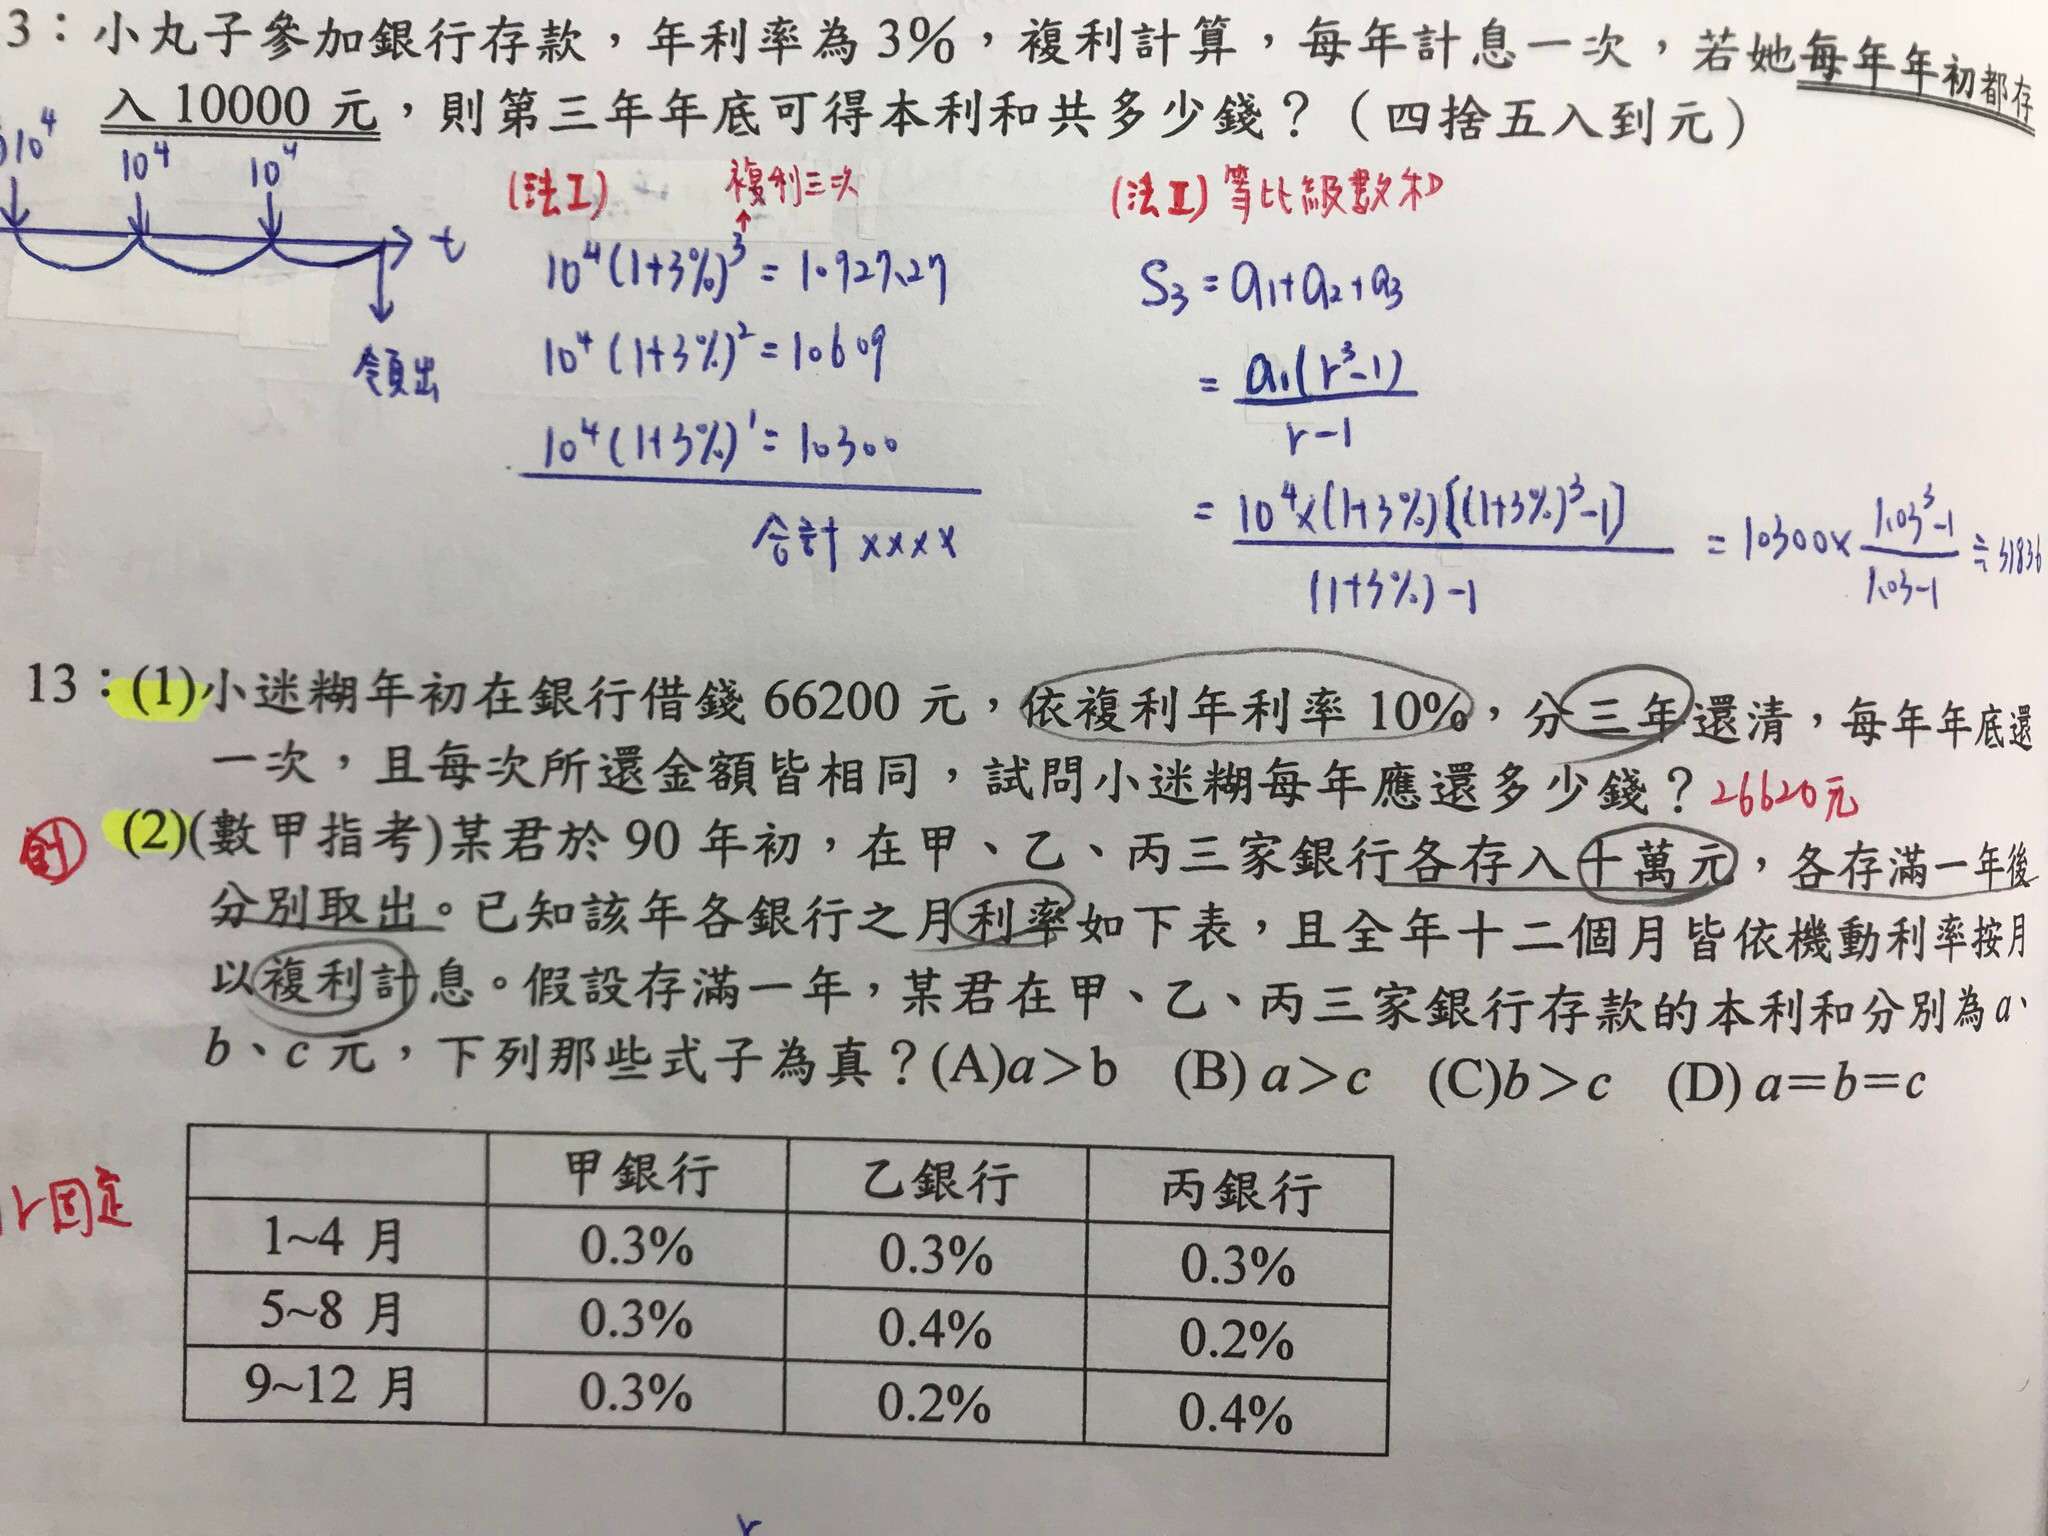 3：小丸子參加銀行存款，年利率為 3%，複利計算，每年計息一次，若她每年年初都存
入 10000 元，則第三年年底可得本利和共多少錢？（四捨五入到元）
10⁴ 10⁴ 10⁴
t
領出
(法I) 複利三次
10⁴(1+3%)³ = 10927.27
10⁴(1+3%)² = 10609
10⁴(1+3%)¹ = 10300
合計 xxxx
(法II) 等比級數和
S₃ = a₁+a₂+a₃
= a₁(r³-1) / r-1
= 10⁴×(1+3%)[(1+3%)³-1] / (1+3%)-1 = 10300× 1.03³-1 / 1.03-1 ≒ 31836
13：(1)小迷糊年初在銀行借錢 66200 元，依複利年利率 10%，分三年還清，每年年底還
一次，且每次所還金額皆相同，試問小迷糊每年應還多少錢？26620元
(2)(數甲指考)某君於 90 年初，在甲、乙、丙三家銀行各存入十萬元，各存滿一年後
分別取出。已知該年各銀行之月利率如下表，且全年十二個月皆依機動利率按月
以複利計息。假設存滿一年，某君在甲、乙、丙三家銀行存款的本利和分別為a、
b、c 元，下列那些式子為真？(A)a＞b (B) a＞c (C)b＞c (D) a＝b＝c
r固定
甲銀行 乙銀行 丙銀行
1~4 月 0.3% 0.3% 0.3%
5~8 月 0.3% 0.4% 0.2%
9~12 月 0.3% 0.2% 0.4%